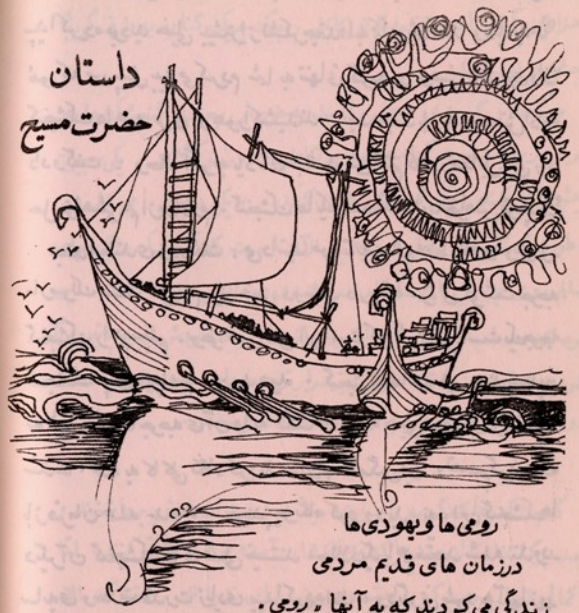 داستان
حضرت مسیح
رومی ها و یهودی ها
در زمان های قدیم مردمی
زندگی می کردند که به آنها « رومی »